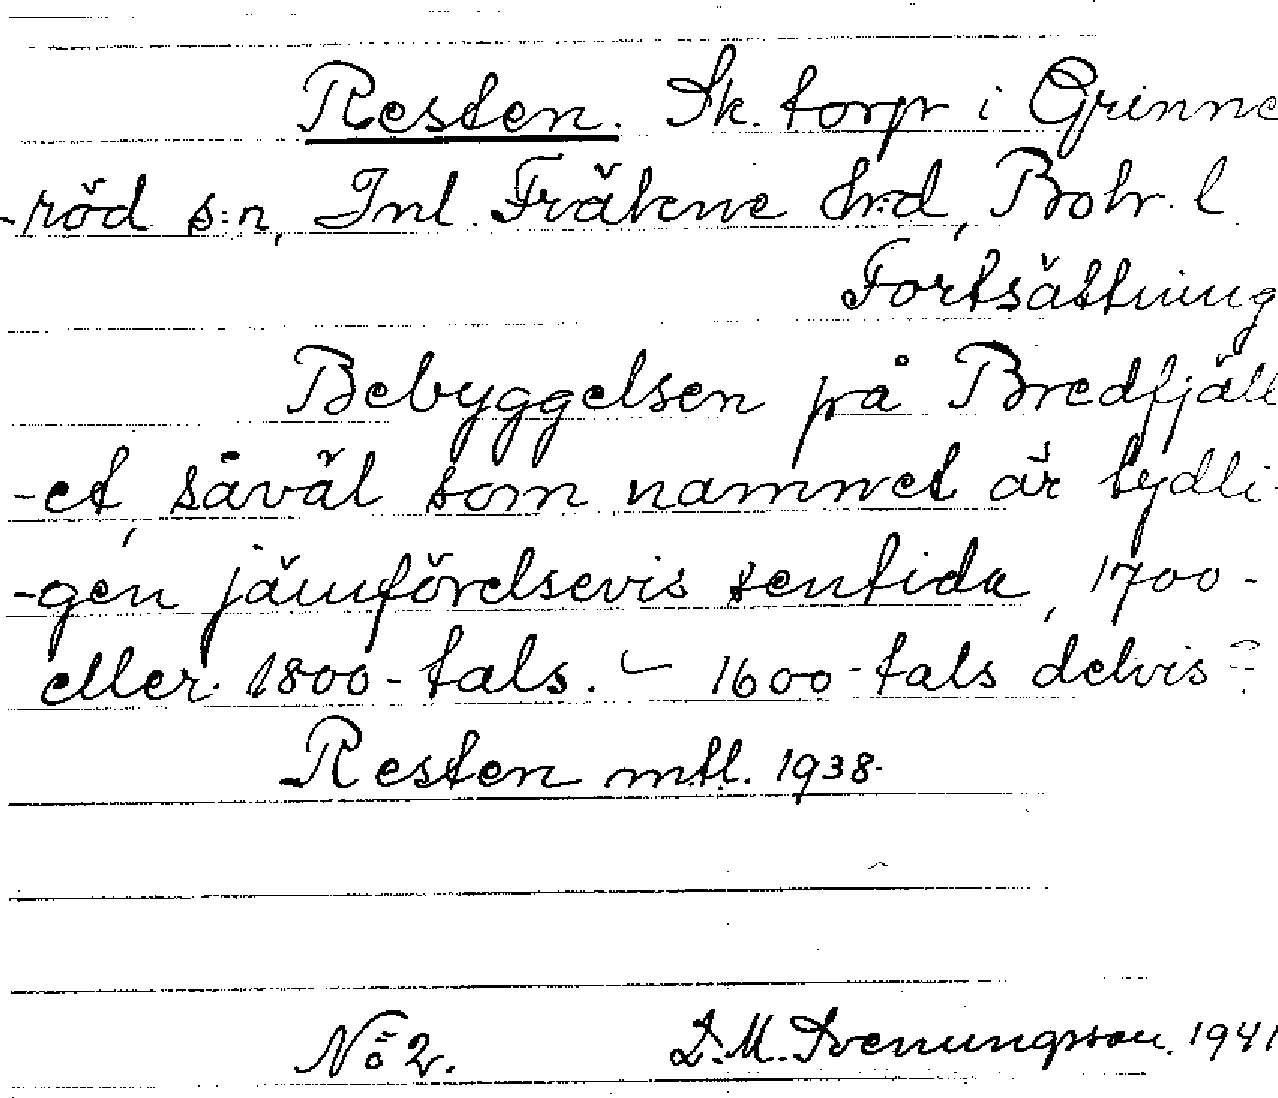 Resten. Sk. torp i Grinne
-röd s:n, Inl. Fräkne hrd, Boh. l.
Fortsättning
Bebyggelsen på Bredfjäll
-et, såväl som namnet är tydli-
-gen jämförelsevis sentida, 1700-
eller 1800-tals. - 1600-tals delvis
Resten mtl. 1938.
No 2. D. M. Svenungsson. 1941